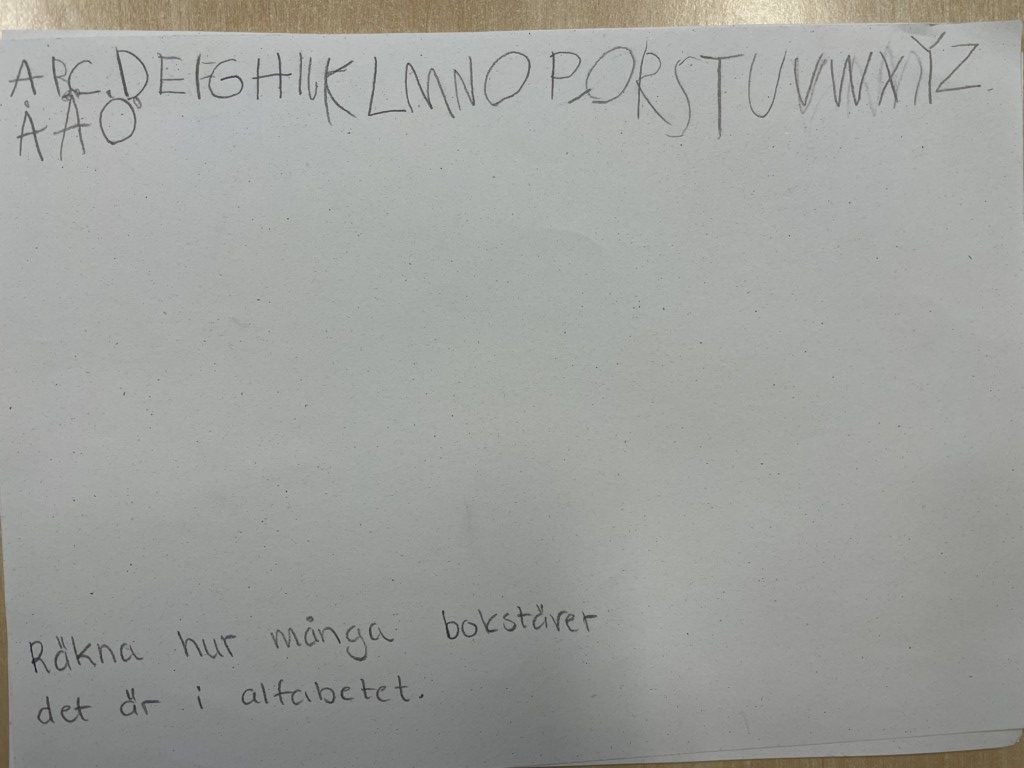 ABCDEFGHIJKLMNOPQRSTUVWXYZ
ÅÄÖ
Räkna hur många bokstäver
det är i alfabetet.